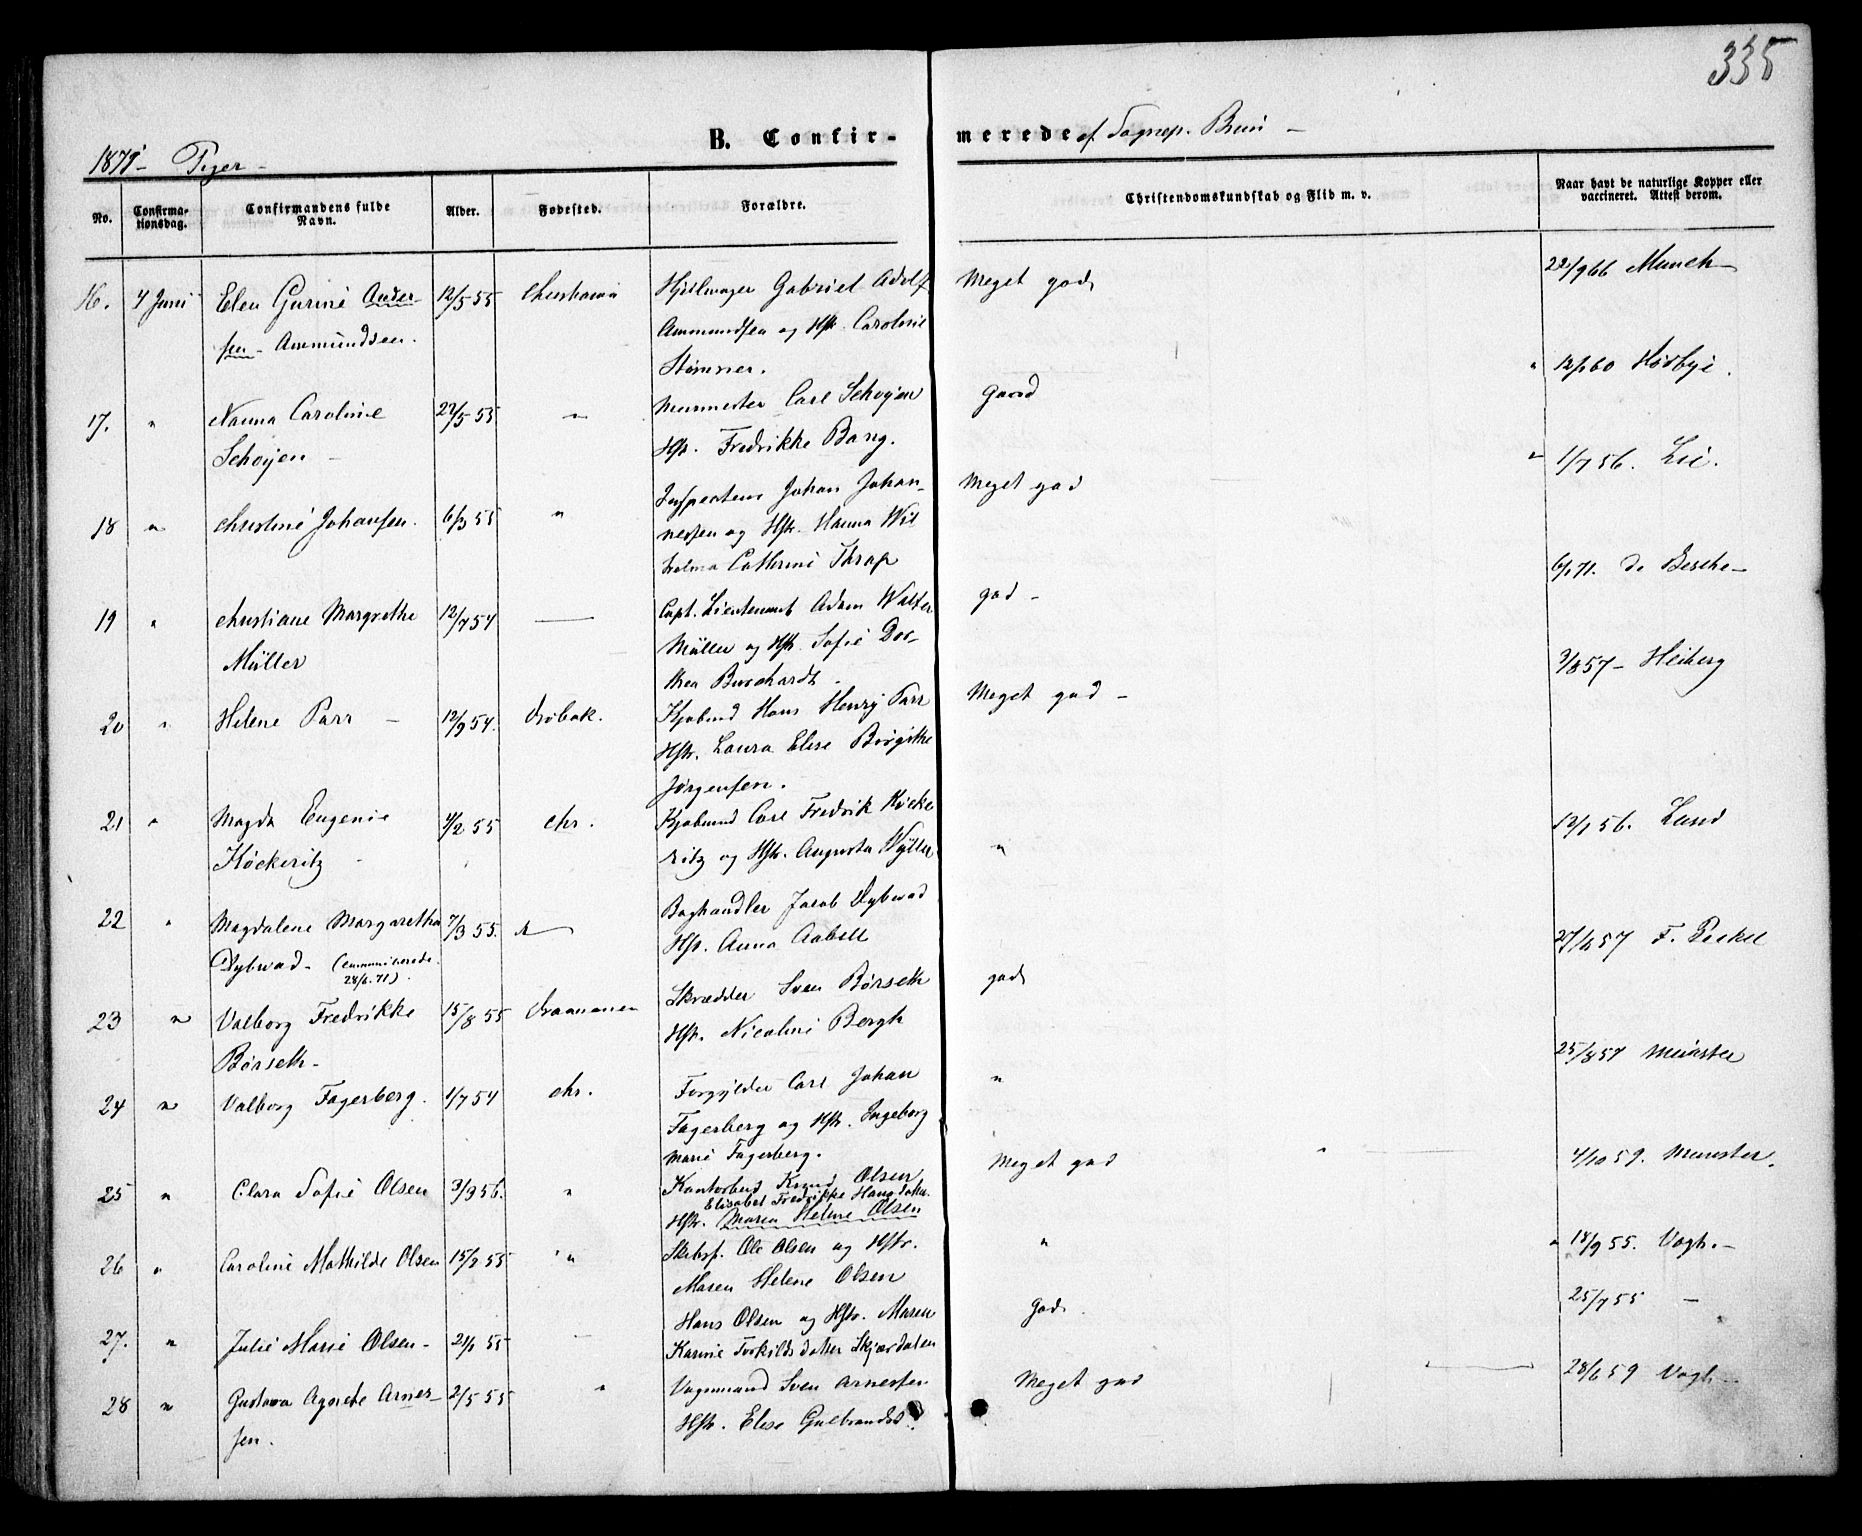 335
B. Confirmerede af Sognep. Brun -
1871 - Piger -
No. Confirmationsdag. Confirmandens fulde Navn. Alder. Fødested. Forældre. Christendomskundskab og Flid m. v. Naar havt de naturlige Kopper eller vaccineret. Attest derom.
16. 4 Juni Elen Gurine Ander- 12/5 55 Christiania Hjulmager Gabriel Adolf Meget god 22/9 66 Munch -
sen - Ammundsen. Ammundsen og Hstr. Caroline
Stømner.
17. " Nanna Caroline 22/5 55 " Murmester Carl Schøyen Good " 12/1 60 Hørbye.
Schøyen - Hstr. Fredrikke Bang.
18 " Christine Johansen. 6/3 55 " Inspecteur Johan Johan- Meget god " 1/7 56. Lie.
nessen og Hstr. Hanna Wil-
helma Cathrine Thrap
19 " Christiane Margrethe 12/7 54 — Capt. Lieutenant Adam Walter god - 6/1 71. de Besche -
Müller Müller og Hstr. Sofie Dor-
thea Burchardt -
20 " Helene Parr - 12/9 54. Drøbak. Kjøbmd Hans Henry Parr Meget god - 3/8 57 - Heiberg
Hstr. Laura Elise Birgithe
Jørgensen.
21 " Magda Eugenie 4/2 55 Chr. Kjøbmd Carl Fredrik Køcke " 12/1 56. Lund
Køckeritz ritz og Hstr. Augusta Wÿller
22 " Magdalene Margaretha 7/3 55. " Boghandler Jacob Dybwad
Dybwad - (communicerede Hstr. Anna Aabell 27/8 57 F. Peckel
28/6. 71).
23 " Valborg Fredrikke 15/8 55 Drammen Skrædder Sven Børseth god
Børseth - Hstr. Nicoline Bergh
24 " Valborg Fagerberg. 1/7 54 Chr. Forgylder Carl Johan " 25/8 57 Münster
Fagerberg og Hstr. Ingeborg
Marie Fagerberg.
25 " Clara Sofie Olsen 3/3 56. " Kontorbud Knud Olsen Meget god " 4/10 59. Münster.
Elisabet Fredrikke Hansdatter
Hstr. Maren Helene Olsen
26 " Caroline Mathilde Olsen 15/2 55 " Skibsf. Ole Olsen og Hstr. " " 18/9 55. Vogh. -
Maren Helene Olsen
27. " Julie Marie Olsen - 2/1 55 - Hans Olsen og Hstr. Maren God. 25/7 55 -
Karine Torkildsdatter Skjærdalen
28 " Gustava Agnete Arne- 2/5 55 " Vognmand Sven Arnesen Meget god — 28/6 59 Vogh. -
sen. Hstr. Elise Gulbrandsd.